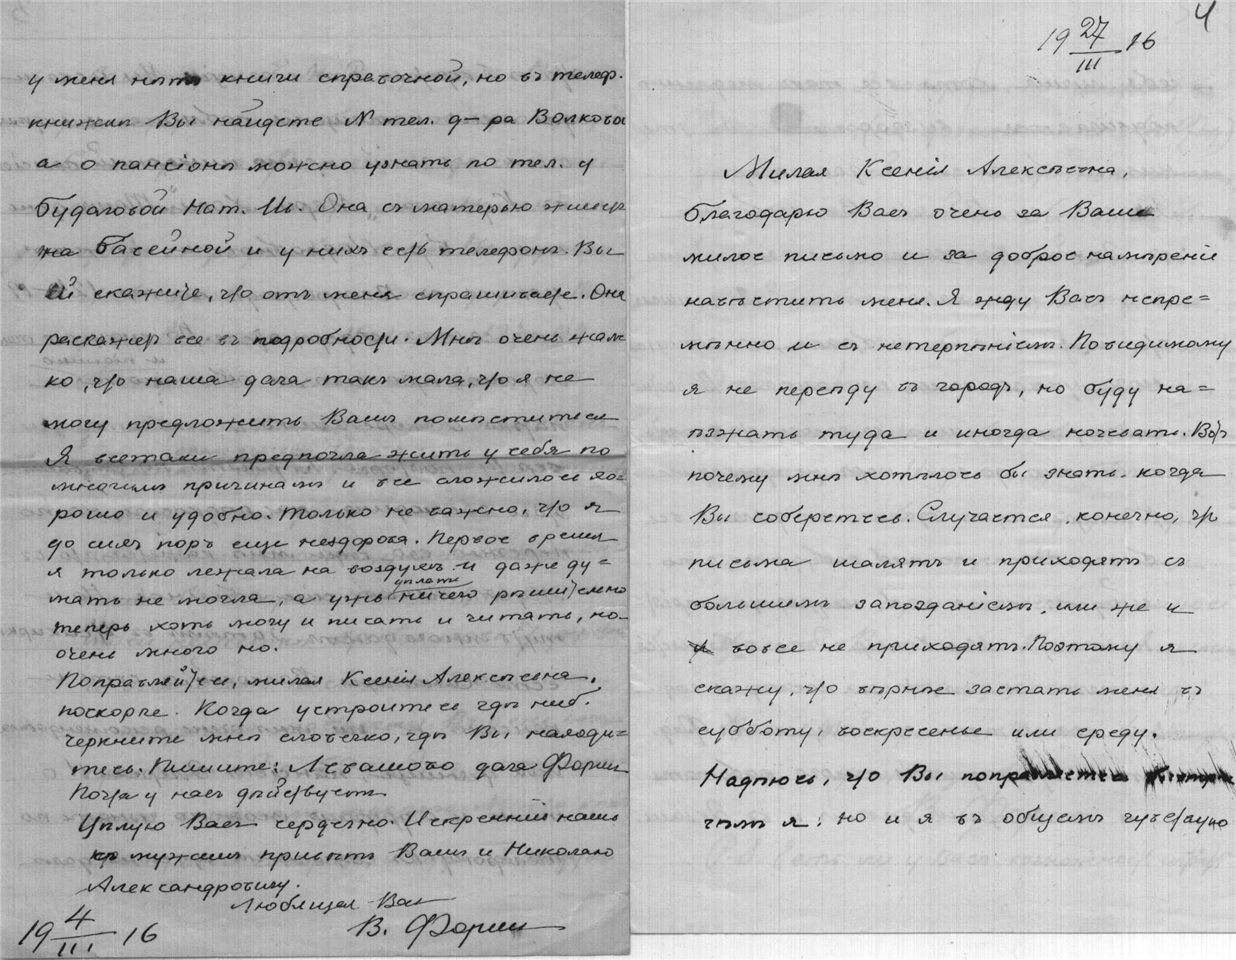 у меня нѣтъ книги справочной, но въ телеф.
книжкѣ Вы найдете N тел. д-ра Волкова
а о пансіонѣ можно узнать по тел. у
Будаговой Нат. Ив. Она съ матерью живетъ
на Бассейной и у нихъ есть телефонъ. Вы
ей скажите, что отъ меня спрашиваете. Она
разскажетъ все въ подробности. Мнѣ очень жал
ко, что наша дача такъ мала, что я не
могу предложить Вамъ помѣститься
Я всетаки предпочла жить у себя по
многимъ причинамъ и все сложилось хо=
рошо и удобно. Только не важно, что я
до сихъ поръ еще нездорова. Первое время
я только лежала на воздухѣ и даже ду=
мать не могла, а ужъ дѣлать ничего рѣшительно
теперь хоть могу и писать и читать, но
очень много но.
Поправляйтесь, милая Ксенія Алексѣевна,
поскорѣе. Когда устроитесь гдѣ ниб.
черкните мнѣ словечко, гдѣ Вы находи=
тесь. Пишите: Левашово дача Форш
Почта у насъ дѣйствуетъ
Цѣлую Васъ сердечно. Искренній нашъ
съ мужемъ привѣтъ Вамъ и Николаю
Александровичу.
Любящая Васъ
В. Форш
19 4/III 16
4
19 27/III 16
Милая Ксенія Алексѣевна,
благодарю Васъ очень за Ваше
милое письмо и за доброе намѣреніе
навѣстить меня. Я жду Васъ непре=
мѣнно и съ нетерпѣніемъ. Повидимому
я не переѣду въ городъ, но буду на=
ѣзжать туда и иногда ночевать. Вотъ
почему мнѣ хотѣлось бы знать когда
Вы соберетесь. Случается, конечно, что
письма шалятъ и приходятъ съ
большимъ запозданіемъ, или же и
вовсе не приходятъ. Поэтому я
скажу, что вѣрнѣе застать меня въ
субботу, воскресенье или среду.
Надѣюсь, что Вы поправляетесь
чѣмъ я; но и я въ общемъ чувствую